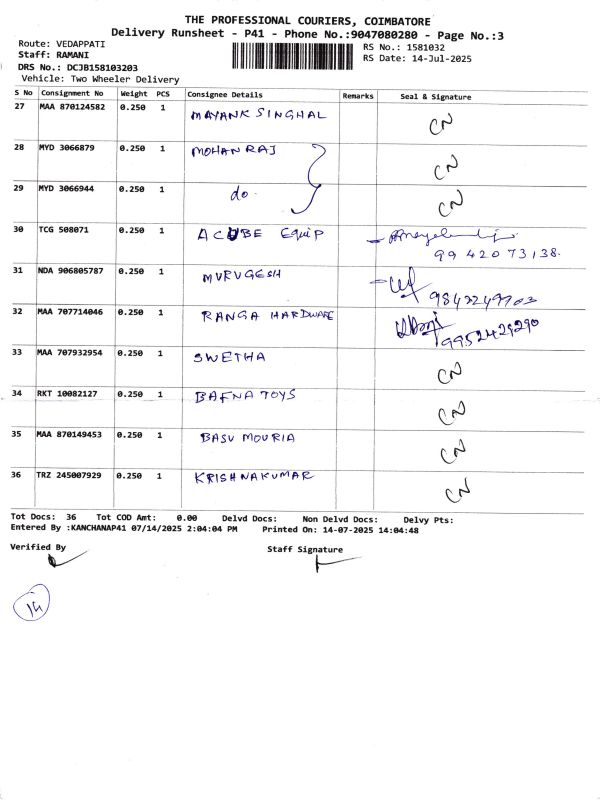 THE PROFESSIONAL COURIERS, COIMBATORE
Delivery Runsheet - P41 - Phone No.:9047080280 - Page No.:3
Route: VEDAPPATI
RS No.: 1581032
Staff: RAMANI
RS Date: 14-Jul-2025
DRS No.: DCJB158103203
Vehicle: Two Wheeler Delivery
S No Consignment No Weight PCS Consignee Details Remarks Seal & Signature
27 MAA 870124582 0.250 1 MAYANK SINGHAL CN
28 MYD 3066879 0.250 1 MOHAN RAJ CN
29 MYD 3066944 0.250 1 do. CN
30 TCG 508071 0.250 1 ACUBE Equip
99 420 73138.
31 NDA 906805787 0.250 1 MURUGESH
9842249703
32 MAA 707714046 0.250 1 RANGA HARDWARE
9952429290
33 MAA 707932954 0.250 1 SWETHA CN
34 RKT 10082127 0.250 1 BAFNA TOYS CN
35 MAA 870149453 0.250 1 BASU MOURIA CN
36 TRZ 245007929 0.250 1 KRISHNAKUMAR CN
Tot Docs: 36 Tot COD Amt: 0.00 Delvd Docs: Non Delvd Docs: Delvy Pts:
Entered By :KANCHANAP41 07/14/2025 2:04:04 PM Printed On: 14-07-2025 14:04:48
Verified By Staff Signature